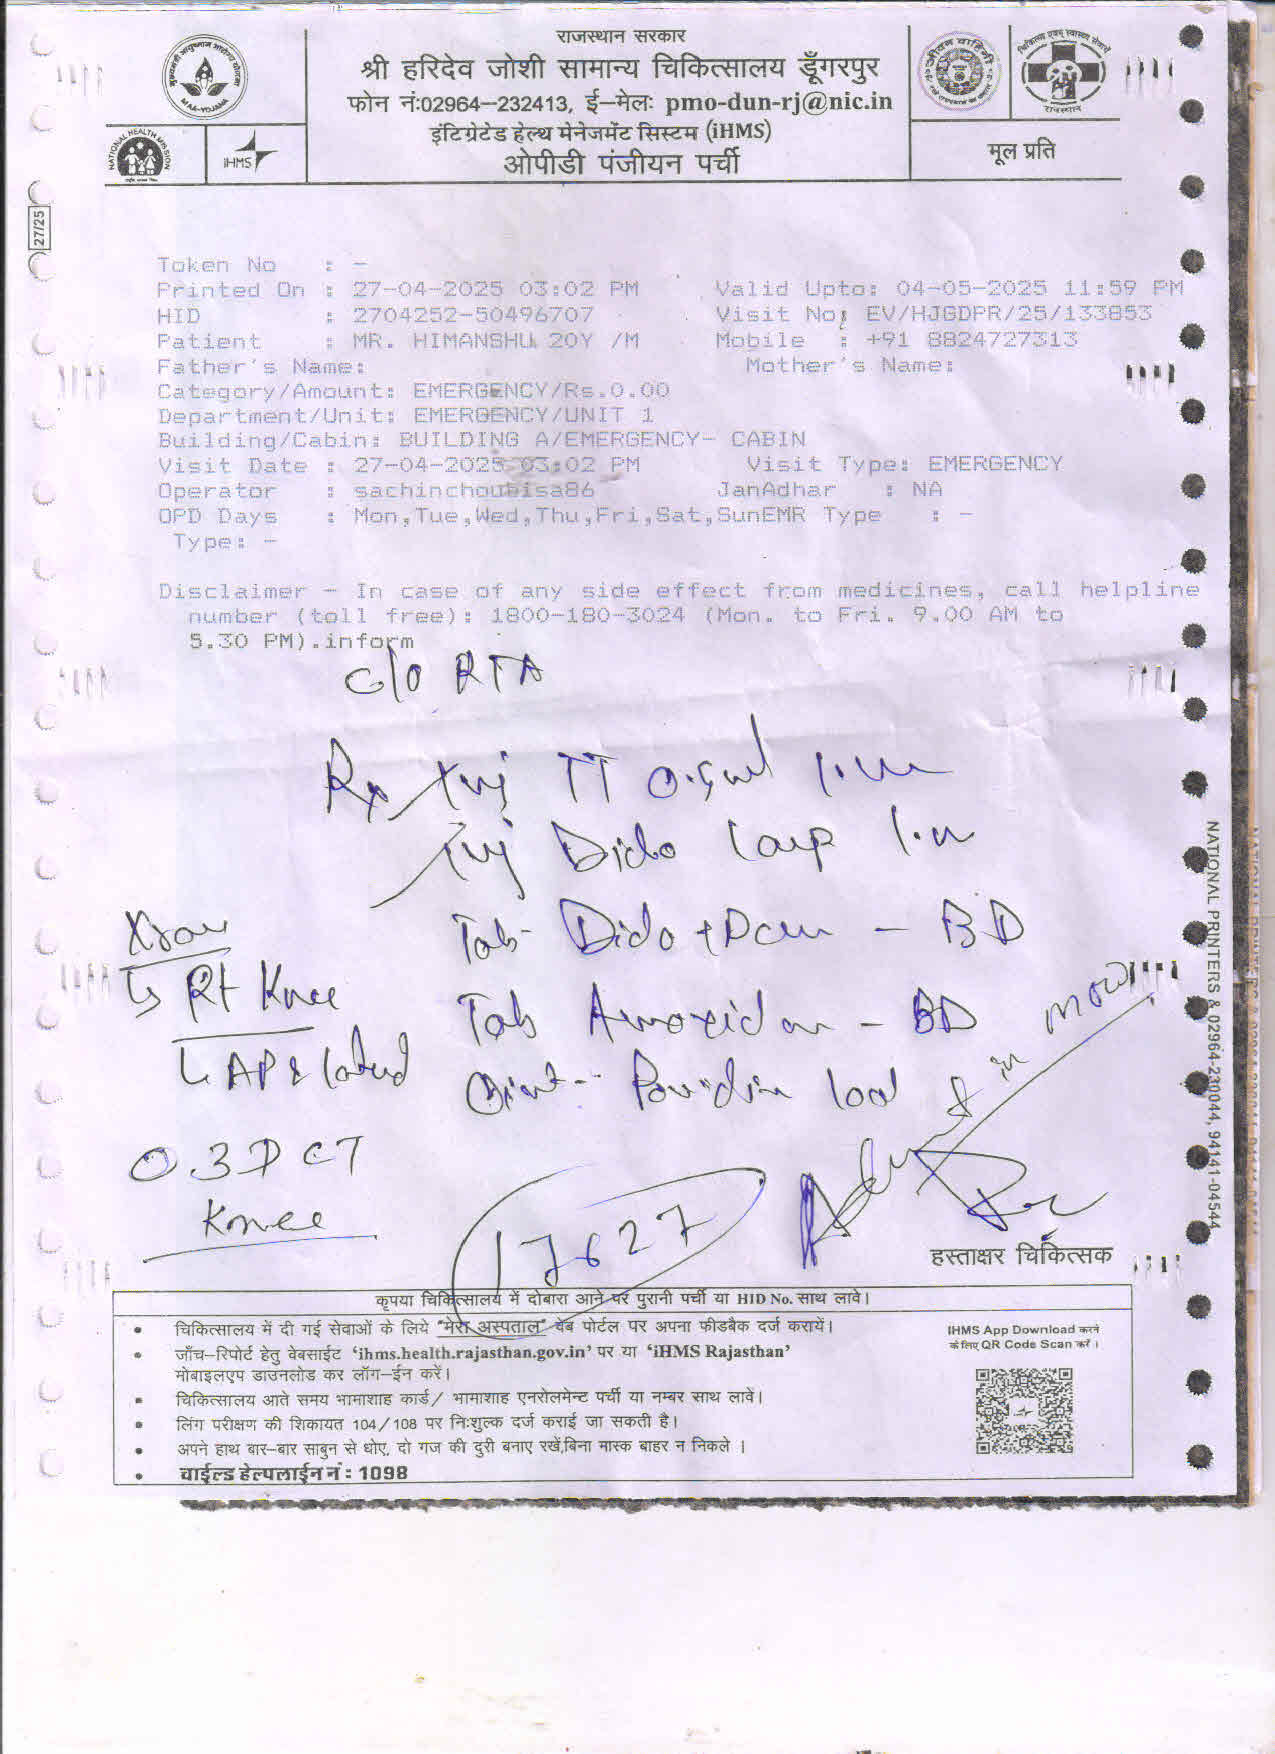 राजस्थान सरकार
श्री हरिदेव जोशी सामान्य चिकित्सालय डूँगरपुर
फोन नं:02964–232413, ई–मेलः pmo-dun-rj@nic.in
इंटिग्रेटेड हेल्थ मेनेजमेंट सिस्टम (iHMS)
ओपीडी पंजीयन पर्ची
MAA-YOJANA
NATIONAL HEALTH MISSION
iHMS
जीवन वाहिनी
चिकित्सा एवम् स्वास्थ्य सेवाऐं
राजस्थान
मूल प्रति
27/25
Token No : -
Printed On : 27-04-2025 03:02 PM Valid Upto: 04-05-2025 11:59 PM
HID : 2704252-50496707 Visit No: EV/HJGDPR/25/133853
Patient : MR. HIMANSHU 20Y /M Mobile : +91 8824727313
Father's Name: Mother's Name:
Category/Amount: EMERGENCY/Rs.0.00
Department/Unit: EMERGENCY/UNIT 1
Building/Cabin: BUILDING A/EMERGENCY- CABIN
Visit Date : 27-04-2025 03:02 PM Visit Type: EMERGENCY
Operator : sachinchoubisa86 JanAdhar : NA
OPD Days : Mon,Tue,Wed,Thu,Fri,Sat,SunEMR Type : -
Type: -
Disclaimer - In case of any side effect from medicines, call helpline
number (toll free): 1800-180-3024 (Mon. to Fri. 9.00 AM to
5.30 PM).inform
C/O RTA
Rx Inj TT 0.5ml I.M
Inj Diclo 1amp I.M
Tab- Diclo + - BD
Tab - BD
Oint- local
Xray
Rt Knee
AP & lateral
3D CT
Knee
17627
हस्ताक्षर चिकित्सक
NATIONAL PRINTERS & 02964-230044, 94141-04544
कृपया चिकित्सालय में दोबारा आने पर पुरानी पर्ची या HID No. साथ लावे।
• चिकित्सालय में दी गई सेवाओं के लिये "मेरा अस्पताल" वेब पोर्टल पर अपना फीडबैक दर्ज करायें।
• जाँच–रिपोर्ट हेतु वेबसाईट 'ihms.health.rajasthan.gov.in' पर या 'iHMS Rajasthan'
मोबाइलएप डाउनलोड कर लॉग–ईन करें।
• चिकित्सालय आते समय भामाशाह कार्ड/ भामाशाह एनरोलमेन्ट पर्ची या नम्बर साथ लावें।
• लिंग परीक्षण की शिकायत 104/108 पर निःशुल्क दर्ज कराई जा सकती है।
• अपने हाथ बार–बार साबुन से धोए, दो गज की दुरी बनाए रखें,बिना मास्क बाहर न निकले ।
• चाईल्ड हेल्पलाईन नं : 1098
IHMS App Download करने
के लिए QR Code Scan करें ।